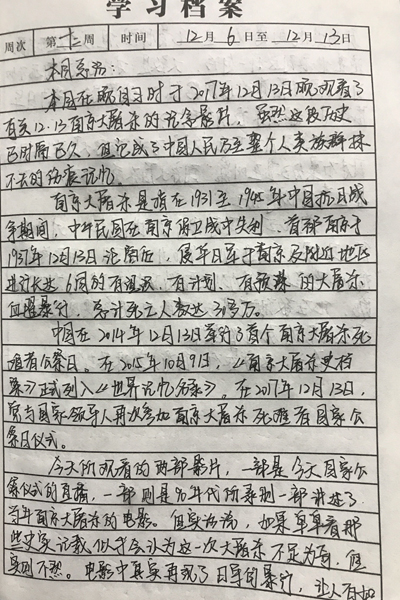 学习档案
周次 第十二周 时间 12月6日至12月13日
本周总结:
本周在晚自习时于2017年12月13日晚观看了
有关12·13南京大屠杀的纪念影片,虽然这段历史
已时隔已久,但它成了中国人民乃至整个人类族群抹
不去的伤痕记忆。
南京大屠杀是指在1931至1945年中国抗日战
争期间,中华民国在南京保卫战中失利、首都南京于
1937年12月13日沦陷后,侵华日军于南京及附近地区
进行长达6周的有组织、有计划、有预谋的大屠杀
血腥暴行,总计死亡人数达30多万。
中国在2014年12月13日举行了首个南京大屠杀死
难者公祭日。在2015年10月9日,《南京大屠杀史档
案》正式列入《世界记忆名录》。在2017年12月13日,
党与国家领导人再次参加南京大屠杀死难者国家公
祭日仪式。
今天所观看的两部影片,一部是今天国家公
祭仪式的直播,一部则是九年代所录制一部讲述了
当年南京大屠杀的电影。但实话说,如果单单看那
些史实记载,似乎会认为这一次大屠杀不足为奇,但
实则不然。电影中真实再现了日军的暴行,让人有如